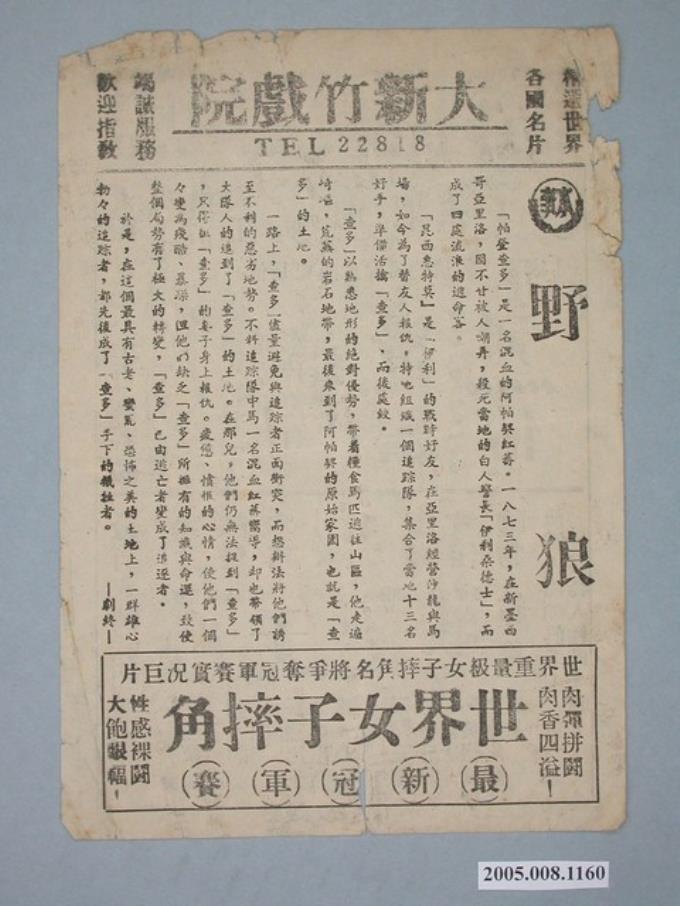 精選世界
各國名片
大新竹戲院
TEL 22818
竭誠服務
歡迎指教
野狼
「帕登查多」是一名混血的阿帕契紅蕃。一八七三年,在新墨西
哥亞里洛,因不甘被人嘲弄,殺死當地的白人警長「伊利桑德士」,而
成了四處流浪的逃命客。
「昆西惠特莫」是「伊利」的戰時好友,在亞里洛經營沙龍與馬
場,如今為了替友人報仇,特地組織一個追踪隊,集合了當地十三名
好手,準備活擒「查多」,而後處絞。
「查多」以熟悉地形的絕對優勢,帶着糧食馬匹逃往山區,他走遍
崎嶇,荒蕪的岩石地帶,最後來到了阿帕契的原始家園,也就是「查
多」的土地。
一路上,「查多」儘量避免與追踪者正面衝突,而想辦法將他們誘
至不利的惡劣地勢。不料追踪隊中馬一名混血紅蕃嚮導,却也帶領了
大隊人的追到了「查多」的土地。在那兒,他們仍無法捉到「查多」
,只得扯「查多」的妻子身上報仇。疲憊、憤恨的心情,使他們一個
々變為殘酷、暴躁,但他們缺乏「查多」所擁有的知識與命運,致使
整個局勢有了極大的轉變,「查多」已由逃亡者變成了追逐者。
於是,在這個最具有古老、蠻亂、恐怖之美的土地上,一群雄心
勃々的追踪者,都先後成了「查多」手下的犧牲者。
—劇終—
世界重量級女子摔角名將爭奪冠軍賽實况巨片
肉彈拼鬪
肉香四溢!
世界女子摔角
(最)(新)(冠)(軍)(賽)
性感裸鬪
大飽眼福!
2005.008.1160